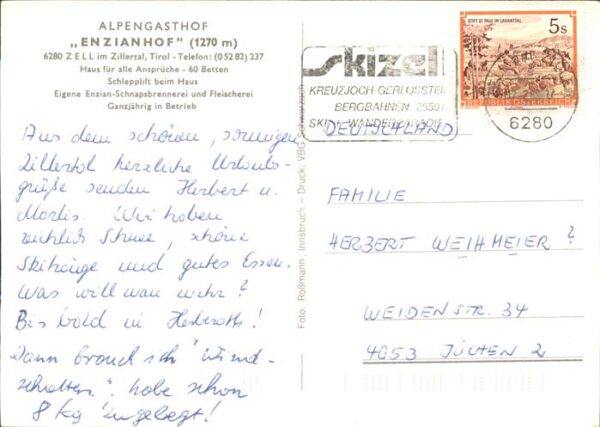 ALPENGASTHOF
„ENZIANHOF" (1270 m)
6280 ZELL im Zillertal, Tirol - Telefon: (0 52 82) 237
Haus für alle Ansprüche - 60 Betten
Schlepplift beim Haus
Eigene Enzian-Schnapsbrennerei und Fleischerei
Ganzjährig in Betrieb
Aus dem schönen, sonnigen
Zillertal herzliche Urlaubs-
grüße senden Herbert u.
Wir haben
reichlich Schnee, schöne
Skihänge und gutes Essen.
Was will man mehr?
Bis bald in
Dann brauch ich "Wind-
schatten." habe schon
8 kg zugelegt!
Foto: Roßmann, Innsbruck - Druck: VBG Schwarzach
STIFT ST. PAUL IM LAVANTTAL
5s
REPUBLIK ÖSTERREICH
skizell
KREUZJOCH-GERLOSSTEIN
BERGBAHNEN
SKI- + WANDERPARADIES
6280
DEUTSCHLAND
FAMILIE
HERBERT WEIHMEIER?
WEIDENSTR. 34
4053 JÜCHEN 2